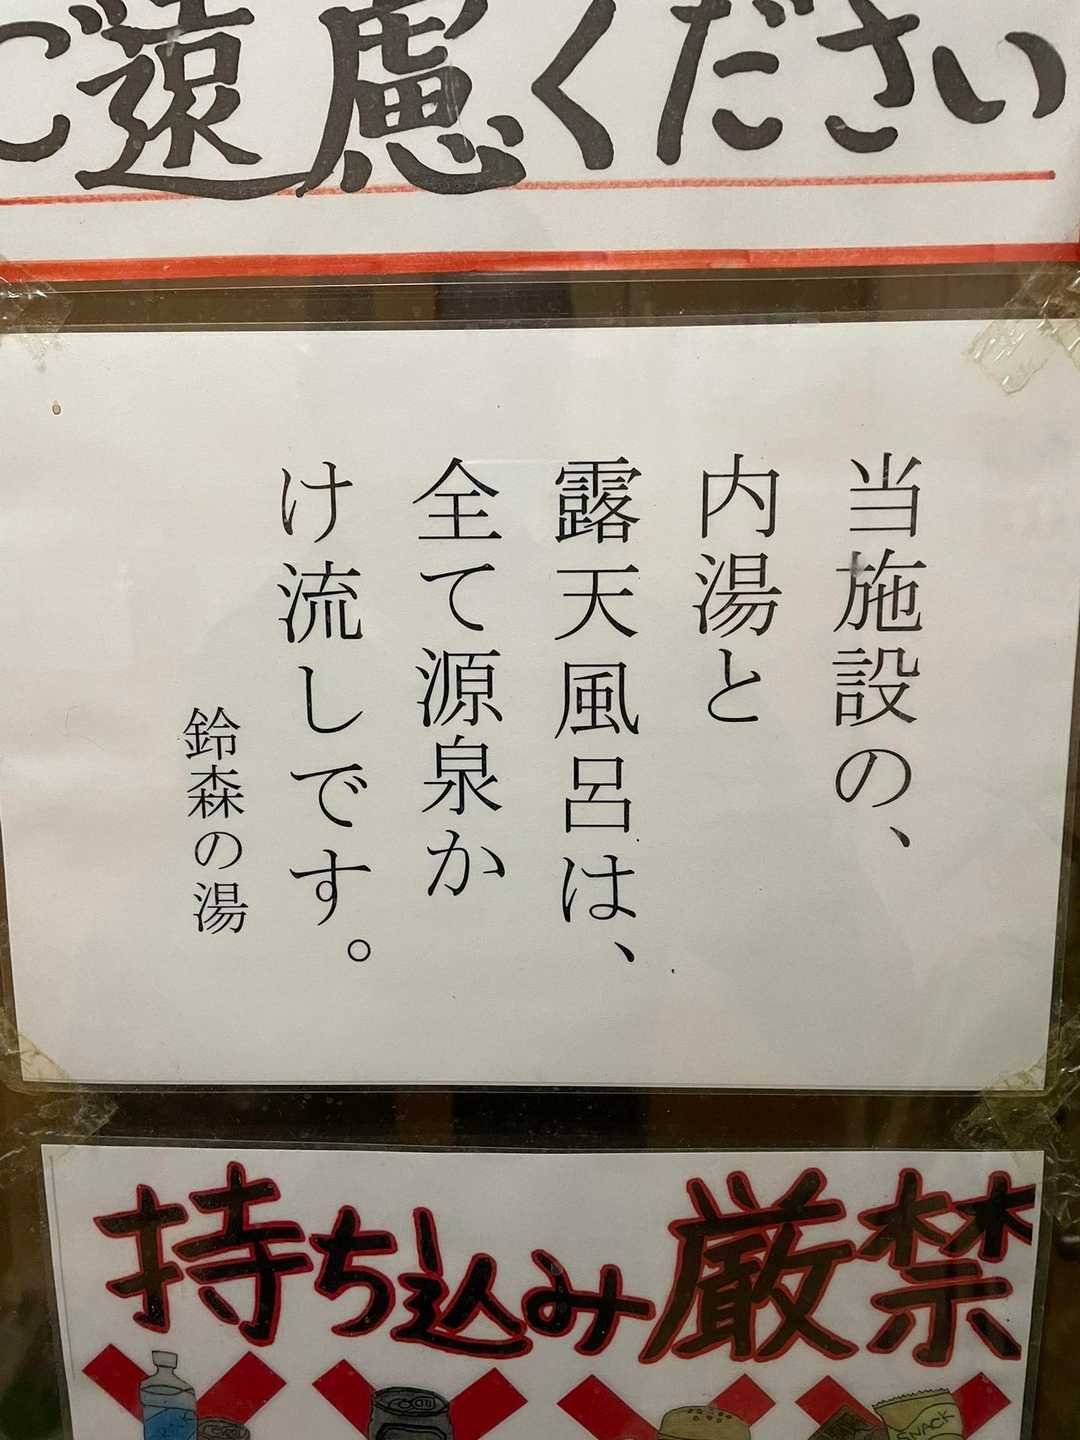 ご遠慮ください
当施設の、
内湯と
露天風呂は、
全て源泉か
け流しです。
鈴森の湯
持ち込み厳禁
SNACK